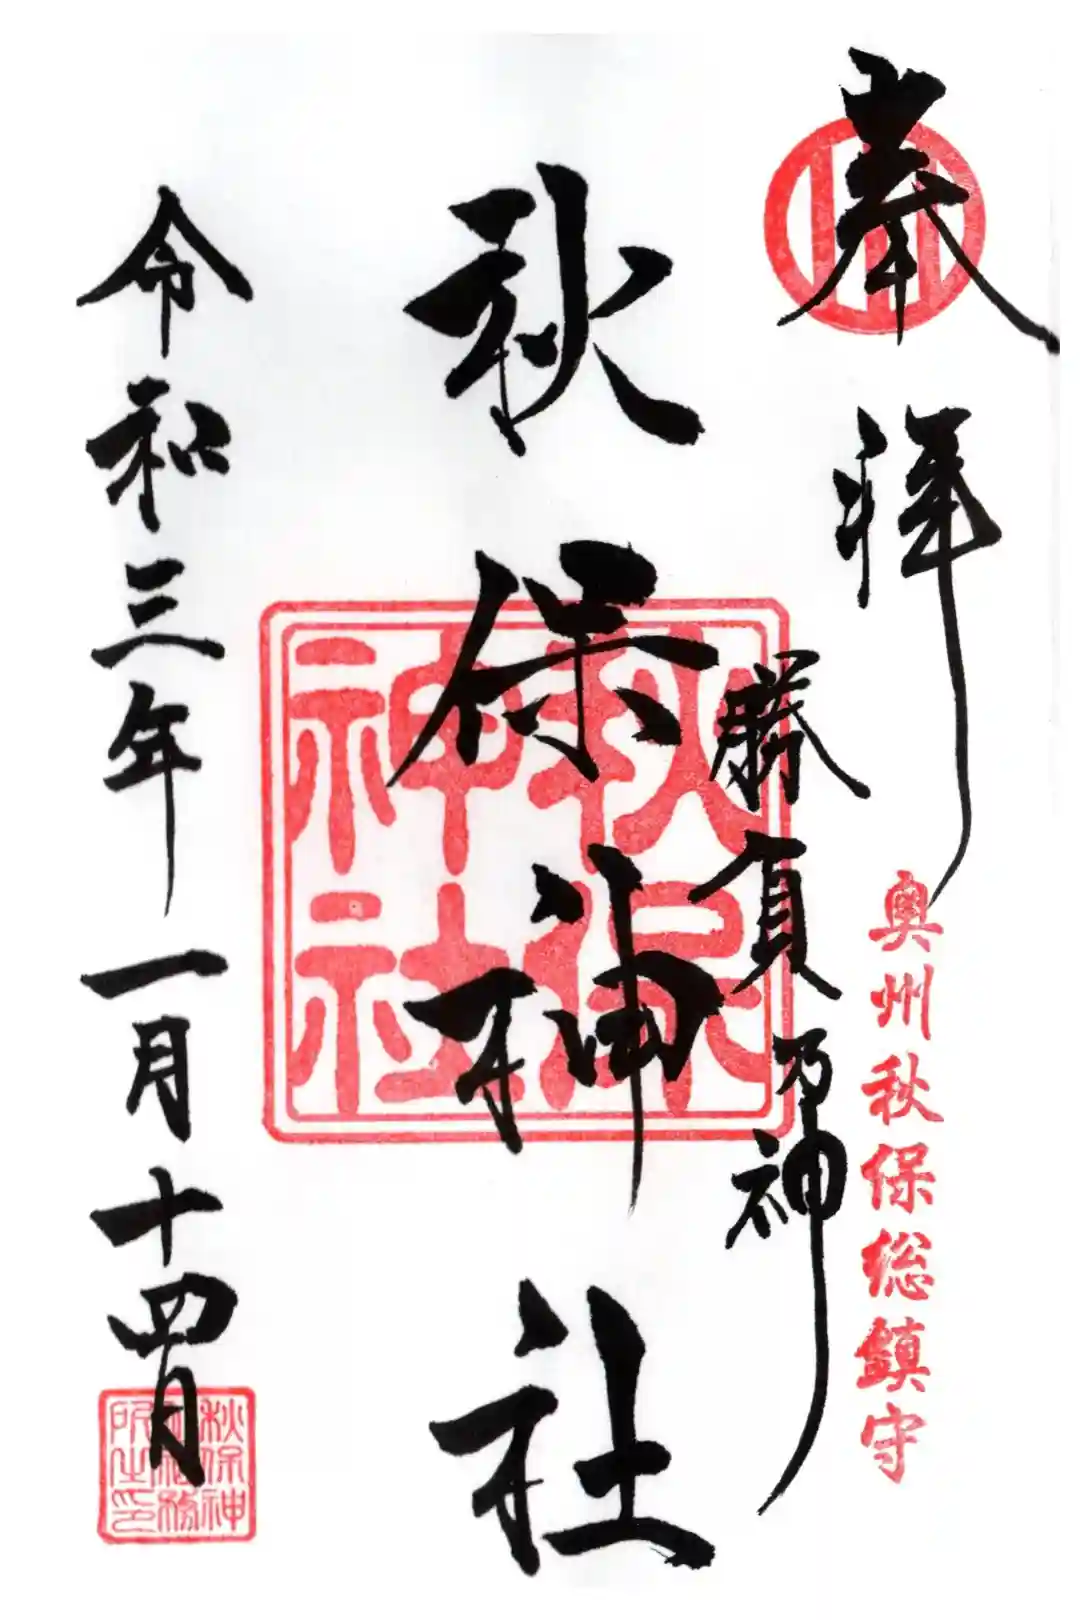 奉拝
奥州秋保総鎮守
勝負乃神
秋保神社
秋保
神社
令和三年一月十四日
秋保神
社社務
所之印